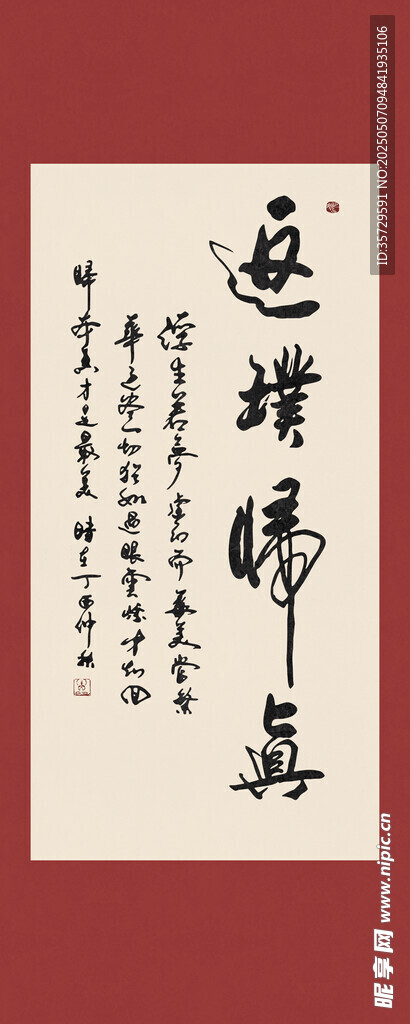 返璞歸眞
浮生若夢虛幻而華美當繁
華盡一切猶如過眼雲煙才知回
歸本真才是最美 時在丁酉仲秋
ID:35729591 NO:20250507094841935106
昵享网 www.nipic.cn